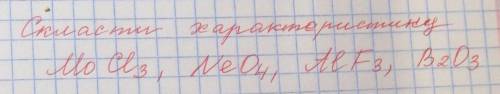 Скласти характеристику
MoCl3, NeO4, AlF3, B2O3